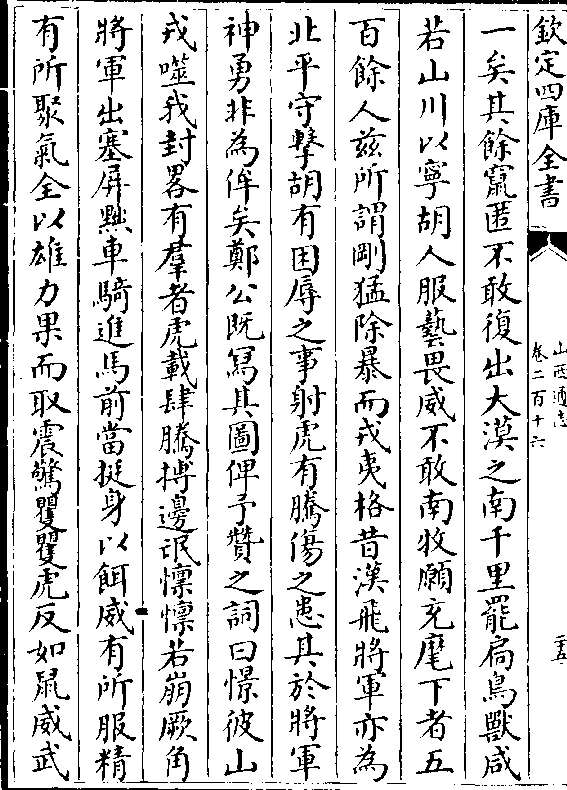 欽定四庫全書
山西通志
卷二百十六
二十五
一矣其餘竄匿不敢復出大漠之南千里罷扃鳥獸咸
若山川以寧胡人服藝畏威不敢南牧願充麾下者五
百餘人兹所謂剛猛除暴而戎夷格昔漢飛將軍亦為
北平守擊胡有困辱之事射虎有騰傷之患其於將軍
神勇非為侔矣鄭公既冩其圖俾予贊之詞曰憬彼山
戎噬我封畧有羣者虎載肆騰搏邊氓懔懔若崩厥角
將軍出塞屏㸃車騎進馬前當挺身以餌威有所服精
有所聚氣全以雄力果而取震驚瞿瞿虎反如鼠威武